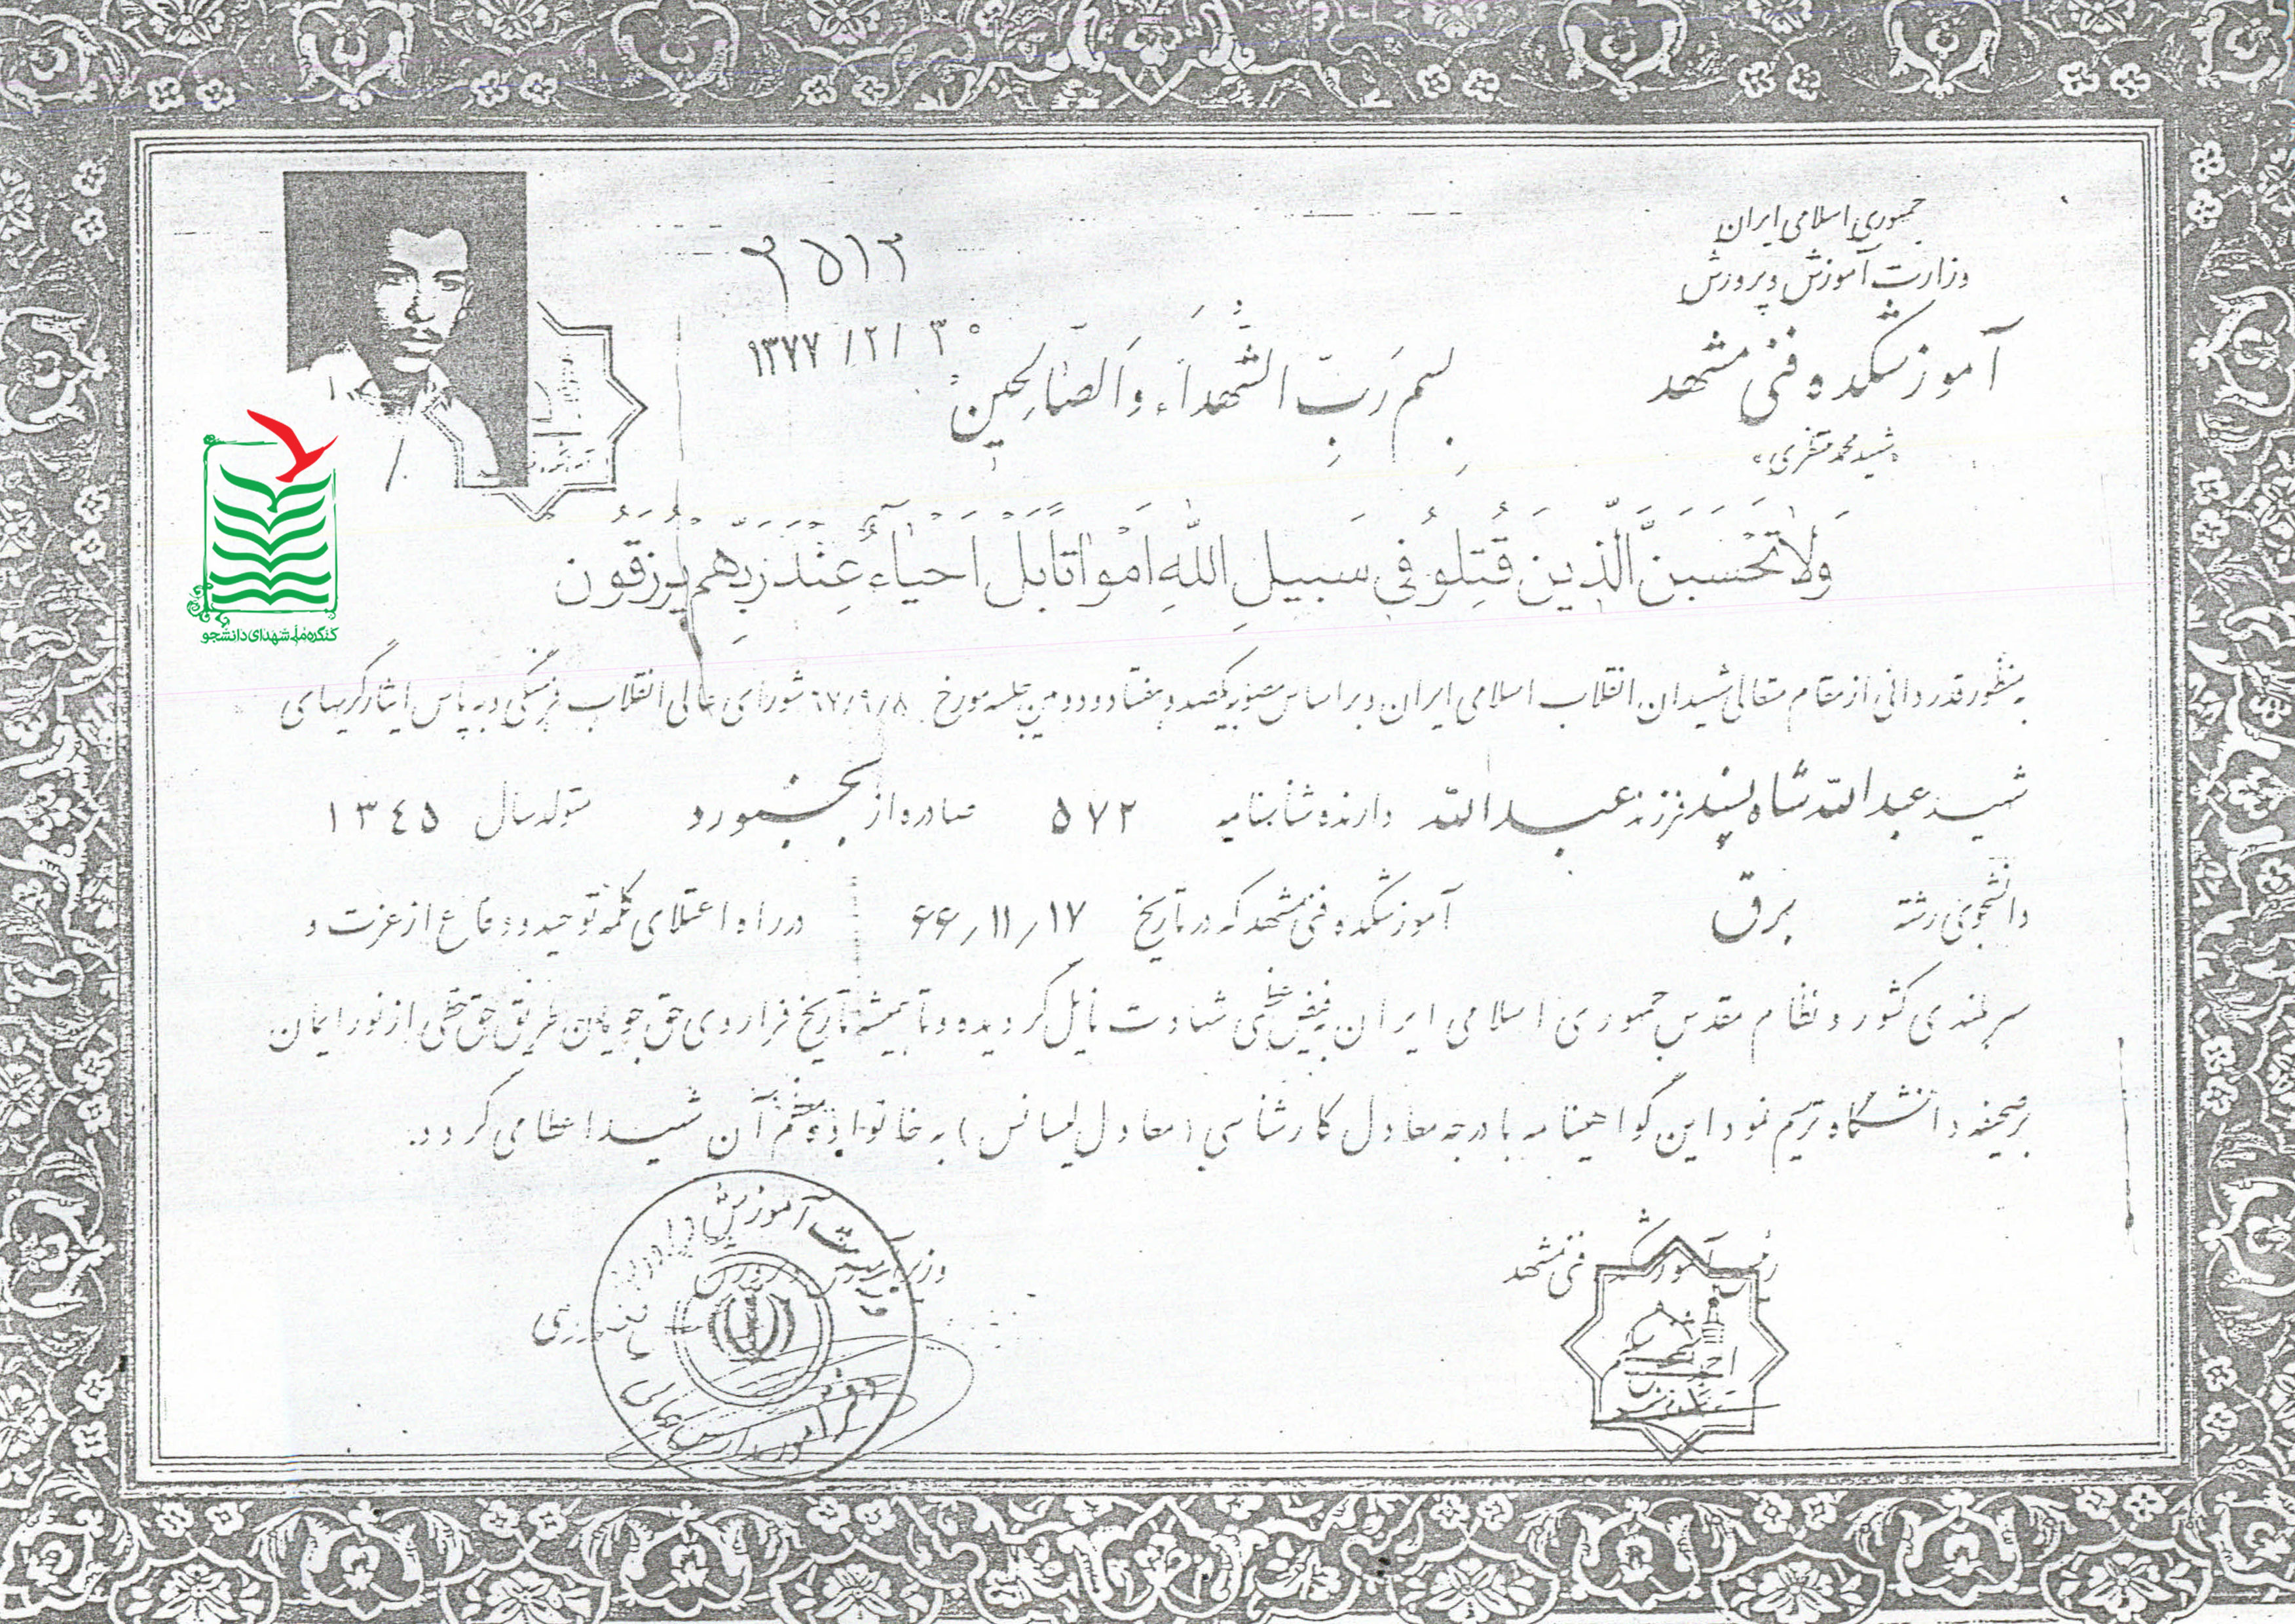 جمهوری اسلامی ایران
وزارت آموزش و پرورش
آموزشکده فنی مشهد
«شهید محمد منتظری»
۱۳۷۷/۲/۳۰
بِسم رَبِّ الشُّهَداءِ وَالصّالِحینَ
وَلاٰتَحْسَبَنَّ الَّذینَ قُتِلُو فی سَبیلِ اللّٰهِ اَمْوٰاتًا بَلْ اَحْیٰاءٌ عِنْدَ رَبِّهِمْ یُرْزَقُون
بمنظور قدردانی از مقام متعالی شهیدان انقلاب اسلامی ایران و بر اساس مصوبه یکصد و هفتاد و دومین جلسه مورخ ۶۷/۹/۸ شورای عالی انقلاب فرهنگی و به پاس ایثارگریهای
شهید عبدالله شاه پسند فرزند عبدالله دارنده شناسنامه ۵۷۲ صادره از بجنورد متولد سال ۱۳۴۵
دانشجوی رشته برق آموزشکده فنی مشهد که در تاریخ ۶۶/۱۱/۱۷ در راه اعتلای کلمه توحید و دفاع از عزت و
سربلندی کشور و نظام مقدس جمهوری اسلامی ایران بفیض عظمی شهادت نایل گردیده و تا همیشه تاریخ فراروی حق جویان طریق حق خطی از نور ایمان
بر صحیفه دانشگاه ترسیم نمود این گواهینامه با درجه معادل کارشناسی (معادل لیسانس) به خانواده معظم آن شهید اعطا می گردد.
رئیس آموزشکده فنی مشهد
وزارت آموزش و پرورش
کنگره ملی شهدای دانشجو